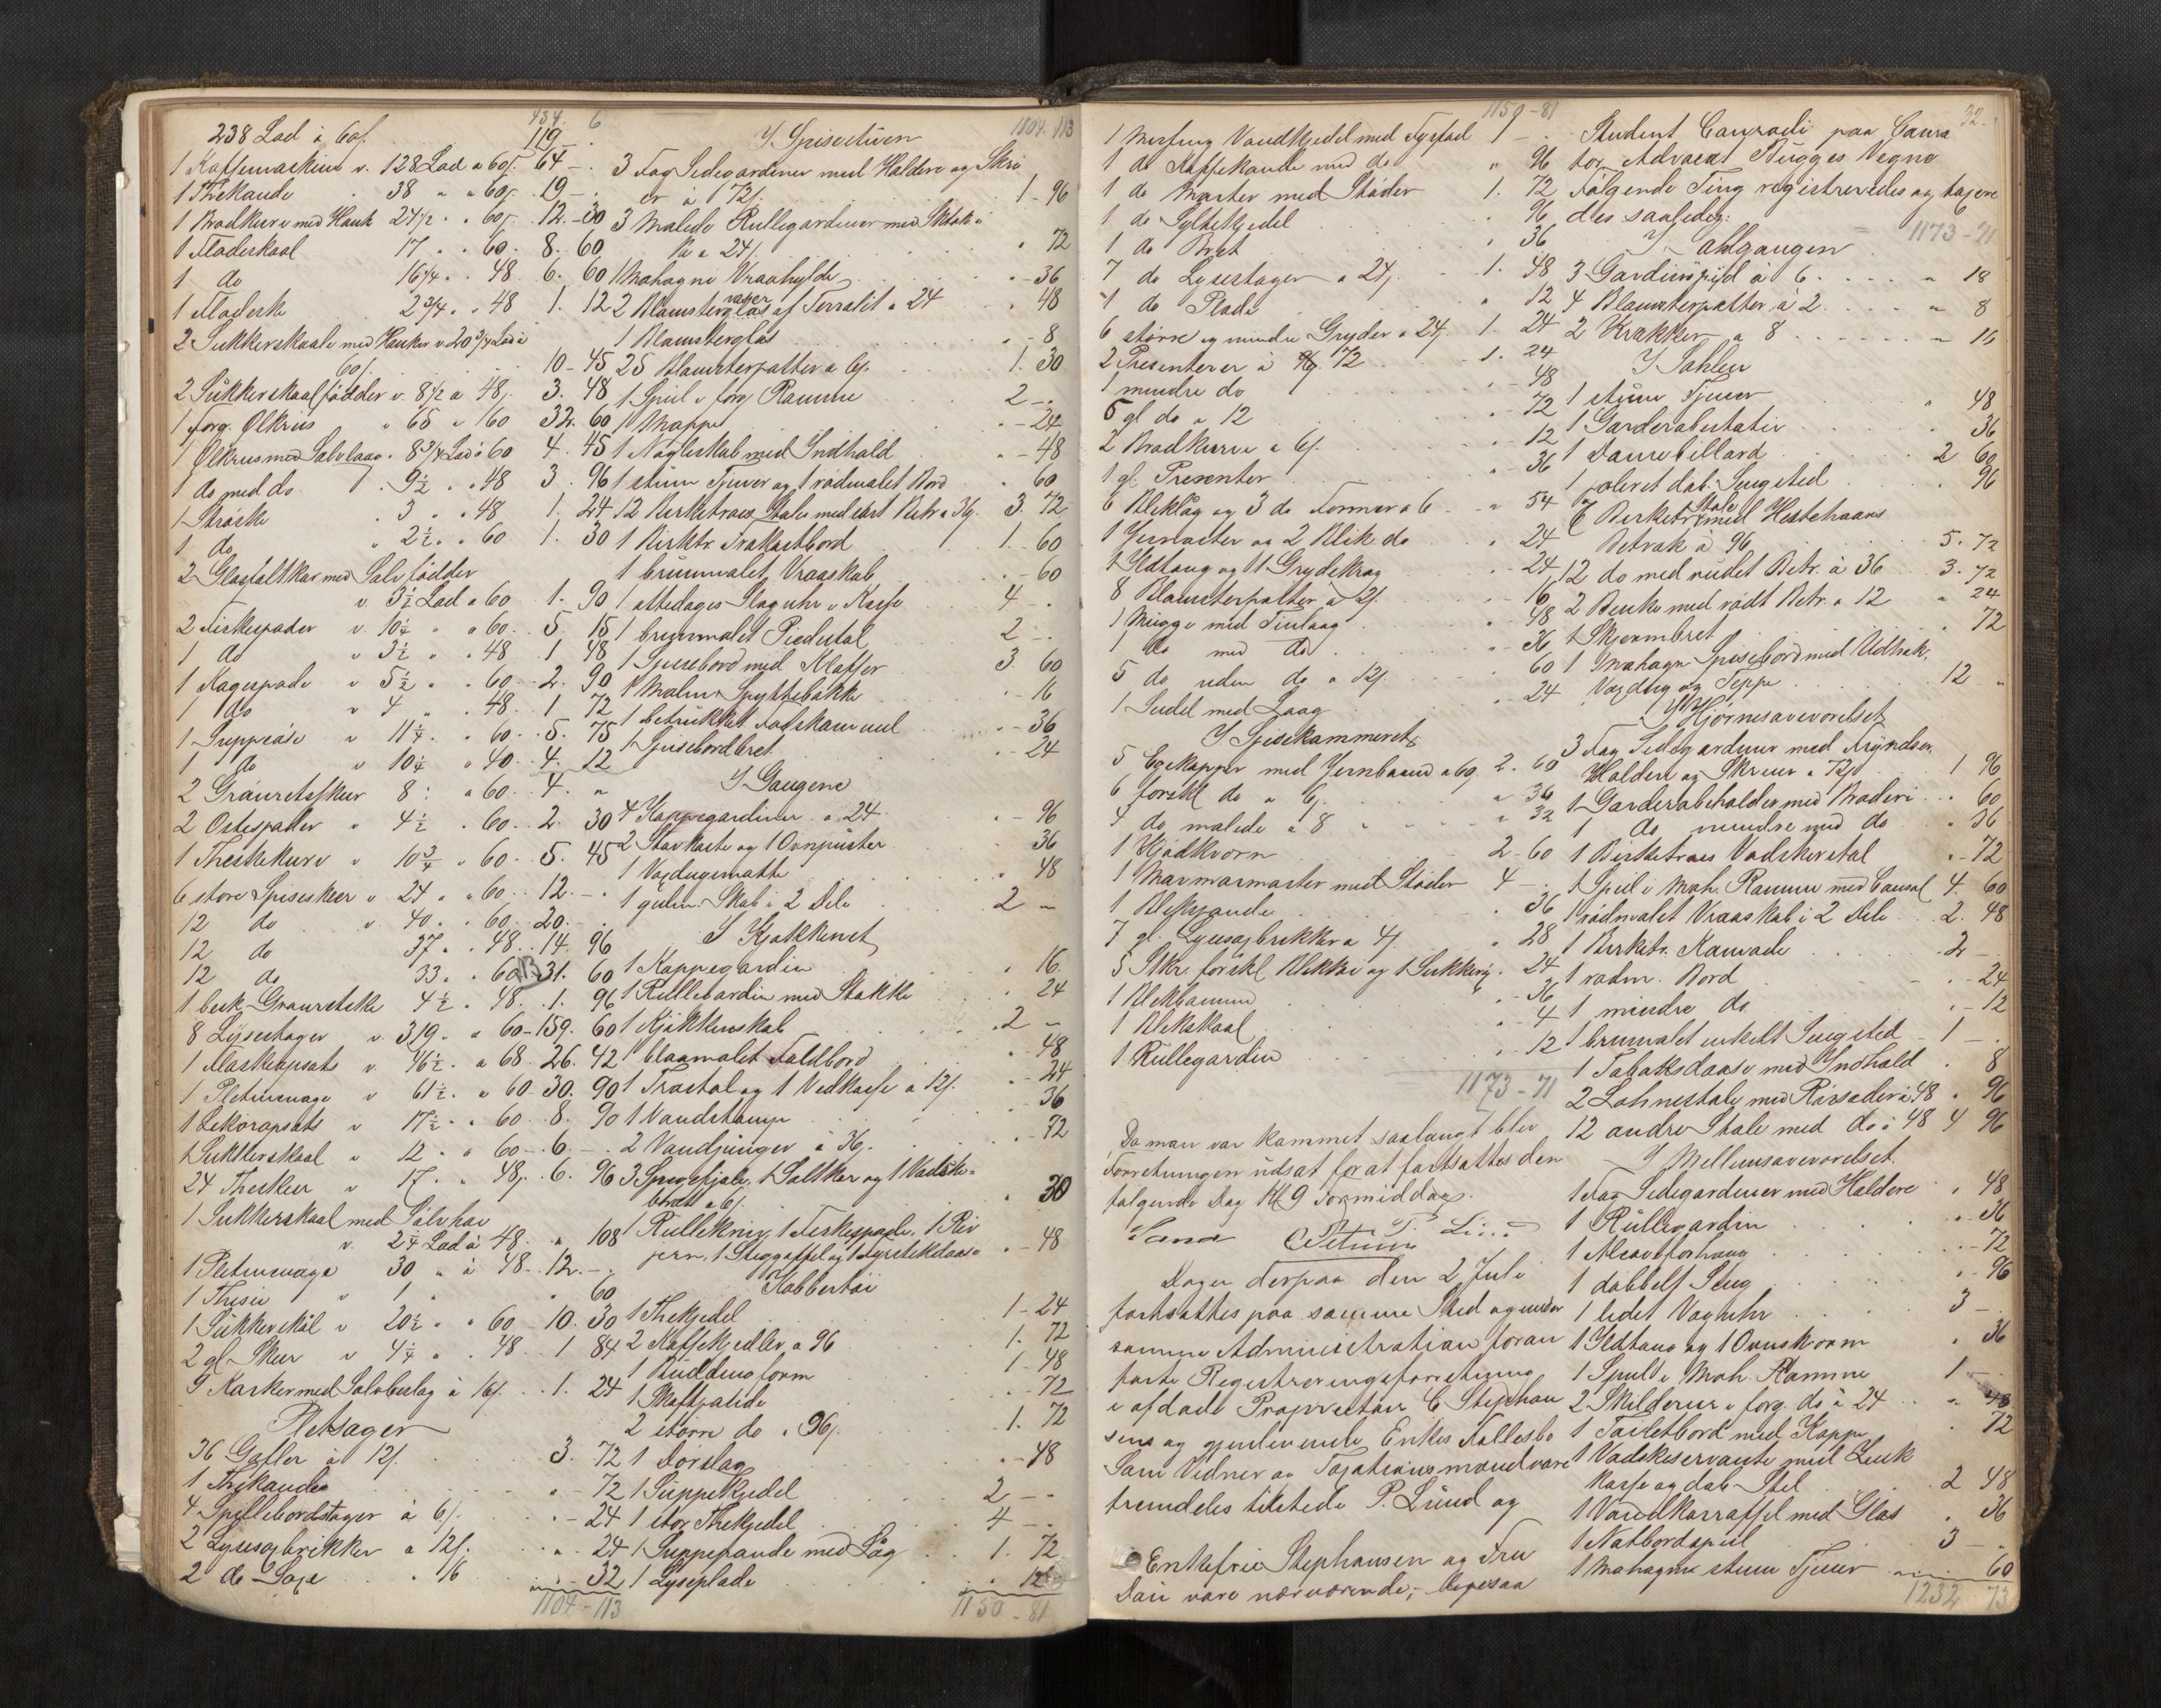 434. 6
238 Lod à 60 s. 119 -.
1 Kaffemaskine v. 128 Lod a 60 s. 64 -.
1 Thekande 38 " a 60 s. 19 -.
1 Brødkurv med Hank 24 1/2 " 60 s. 12.-30
1 Flødeskaal 17 " 60. 8. 60
1 do 16 1/4 " 48 6. 60
1 Flødeske 2 3/4 " 48 1. 12
2 Sukkerskaale med Hanker v. 20 3/4 Lod à
60 s. 10-45
2 Sukkerskaalfødder v. 8 1/2 a 48 s. 3. 48
1 Forg. Ølkrus " 65 " 60 32. 60
1 Ølkrus med Sølvlaag. 8 3/4 Lod à 60 4. 45
1 do med do 9 1/2 " 48 3. 96
1 Strøske 3 " 48 1. 24
1 do " 2 1/2 " 60 1. 30
2 Glassaltkar med Sølvfødder
v. 3 1/2 Lod a 60 1. 90
2 Fiskespader v. 10 1/4 " a 60 5. 15
1 do v 3 1/2 " 48 1 48
1 Kagespade v 5 1/2 " 60 2. 90
1 do v 4 " 48 1 72
1 Suppeøse v 11 1/4 " 60. 5. 75
1 do v 10 1/4 " 40. 4. 12
2 Grønretskeer 8 : a 60. 4. "
2 Ostespader v 4 1/2 . 60. 2. 30
1 Theskekurv v 10 3/4 " 60. 5. 45
6 store Spiseskeer v 24 " 60. 12. -.
12 do v. 40 " 60. 20. -.
12 do 37 " 48. 14. 96
12 do 33. " 60. 31. 60
1 beck. Grønretske 4 1/2 " 48. 1. 96
8 Lysestager v. 319. a 60-159. 60
1 Flaskeopsats v. 46 1/2 . a 68. 26. 42
1 Pletmenage v 61 1/2 . a 60. 30. 90
1 Likøropsats v 17 1/2 " 60. 8. 90
1 Sukkerskaal v 12 " 60-6. -.
24 Theskeer v 17. " 48 s. 6. 96
1 Sukkerskaal med Sølvhav
v. 2 1/4 Lod à 48. " 108
1 Pletmenage 30 " à 48. 12. -.
1 Thesie v 1 " 60
1 Sukkerskål v 20 1/2 " 60 10. 30
2 gl. Skeer v 4 1/4 " 48 1 84
9 Karker med Sølvbeslag à 16 s. 1. 24
Pletsager
36 Gafler à 12 s. 3. 72
1 Thekande " - 72
4 Spillebordstager à 6 s. " - 24
2 Lysesaxbrikker a 12 s. " 24
2 do Saxe " 16 " - 32
1104 - 113
1104. 113
I Spisestuen
3 Fag Sidegardiner med Holdere og Skru
er à 72 s. 1-96
3 Malede Rullegardiner med Stokke
Pa a 24 s. " 72
1 Mahagni Vraahylde " - 36
2 Blomstervaser af Terralit a 24 " 48
1 Blomsterglas " - 8
25 Blomsterpotter a 6 s. 1. 30
1 Speil i forg. Ramme 2 -.
1 Mappe " - 24
1 Nøgleskab med Indhold " - 48
1 stum Tjener og 1 rødmalet Bord " 60
12 Birketræes Stole med sort Betr. a 36. 3. 72
1 Birktr. Frokostbord 1. - 60
1 brunmalet Vraaskab " - 60
1 ottedages Slaguhr i Kasse 4 -.
1 brunmalet Piedestal 2 -.
1 Spisebord med Klaffer 3. 60
1 Malm Spyttebakke " - 16
1 betrukket Fodskammel " - 36
1 Spisebordbret " - 24
I Gangene
4 Kappegardiner a 24 " - 96
2 Støvkoste og 1 Ovnpuster 36
1 Voxdugsmatte " 48
1 gulm. Skab i 2 Dele 2 -
I Kjøkkenet
1 Kappegardin " 16
1 Rullegardin med Stokke " 24
1 Kjøkkenskab 2 -
1 blaamalet Foldbord " - 48
1 Træstol og 1 Vedkasse a 12 s. " - 24
1 Vandstamp " - 36
2 Vandspinger à 36. " - 72
3 Spegefjele, 1 Saltkar og 1 Vadske-
bræt a 6 s. " 30
1 Rullekniv, 1 Fiskespade, 1 Riv
jern, 1 Steggaffel og 1 Fyrstikdaase " - 48
Kobbertøi
1 Thekjedel 1-24
2 Kaffekjedler a 96 1. 72
1 Buddingform 1-48
1 Skaftpande " - 72
2 større do a 96 s. 1. 72
1 Dørslag " - 48
1 Suppekjedel 2 -.
1 stor Thekjedel 4 -.
1 Suppepande med Låg 1. 72
1 Lyseplade " 12
1150 - 81
1150-81
1 Messing Vandkjedel med Fyrfad 1 -.
1 do Kaffekande med do " 96
1 do Morter med Støder 1. 72
1 do Syltekjedel " 96
1 do Bret " 36
7 do Lysestager a 24 s. 1. 48
1 do Plade " 12
6 større og mindre Gryder a 24 s. 1. 24
2 Presenterer à 72 1. 24
1 mindre do " - 48
6 gl do a 12 " - 72
2 Brødkurve a 6 s. " - 12
1 gl. Presenter " - 36
6 Bliklåg og 3 do Former a 6 " 54
1 Jernmorter og 2 Blik do " 24
1 Ildtang og 1 Grydekrog " - 24
8 Blomsterpotter à 2 s. " - 16
1 Mugge med Tinlaag " - 48
1 do med do " - 36
5 do uden do a 12 s. 60
1 Seidel med Laag " - 24
I Spisekammeret
5 Egekopper med Jernbaand a 60. 2. 60
6 forskl. do a 6 s. " 36
4 do malede a 8 " 32
1 Kjødkværn 2-60
1 Marmormorter med Støder 4 -.
1 Blikspande " 36
7 gl. Lysesaxbrikker a 4 s. " 28
5 Stkr. forskl. Blikke og 1 Sukker " 24
1 Blekkanne " - 36
1 Blikskaal " - 4
1 Rullegardin " - 12
1173-71
Da man var kommet saalangt blev
Forretningen udsat for at fortsættes den
følgende Dag Kl 9 Formiddag.
P. Lund
Dagen derpaa den 2 Juli
fortsattes paa samme Sted og under
samme Administration foran
førte Registreringsforretning
i afdøde Proprietær C Stephan
sens og gjenlevende Enkes Fællesbo
Som Vidner og Taxationsmænd vare
fremdeles tilstede P. Lund og
Enkefrue Stephansen og Fru
Daii vare nærværende, ligesaa
32.
Student Conradi paa Conra
tor, Advocat Bugges Vegne
Følgende Ting registreredes og taxere
des saaledes:
1173-71
I Ahlgangen
3 Gardinspyd à 6 " 18
4 Blomsterpotter à 2 " 8
2 Krakker a 8 " 16
I Sahlen
1 stum Tjener " 48
1 Garderobestativ 36
1 Dannebillard 2 60
1 poleret dob. Sengested " 96
6 Birketr. Stole med Hestehaars
Betræk à 96 5. 72
12 do med rudet Betr. à 36 3. 72
2 Benke med rødt Betr. a 12 " 24
1 Skjermbret " 72
1 Mahagni Spisebord med Udtræk,
Voxdug og Teppe 12 "
I Hjørnesoveværelset
3 Fag Sidegardiner med Fryndser,
Holdere og Skruer a 72 s. 1 96
1 Garderobeholder med Broderi " 60
1 do mindre med do " 36
1 Birketræes Vadskerstol " - 72
1 Speil i Mah. Ramme med Consol 4. 60
1 rødmalet Vraaskab i 2 Dele 2. 48
1 Birketr. Komode 2 -
1 rødm. Bord " - 24
1 mindre do " - 12
1 brunmalet enkelt Sengested 1 -
1 Tobaksdaase med Indhold " 8
2 Lehnestole med Rørsæder à 48 " 96
12 andre Stole med do à 48 4 96
I Mellemsoveværelset
1 Fag Sidegardiner med Holdere " 48
1 Rullegardin " 36
1 Alcoveforhæng " - 72
1 dobbelt Seng " - 96
1 lidet Væguhr 3 -.
1 Ildtang og 1 Ovnskorm " 36
1 Speil i Mah. Ramme 1 -
2 Skilderier i forg. do à 24 " 48
1 Toiletbord med Kappe " 72
1 Vadskeservante med Zink
kasse og dob. Stel 2 48
1 Vandkarraffel med Glas " 36
1 Natbordspeil 3 -.
1 Mahagni stum Tjener " 60
1232 73